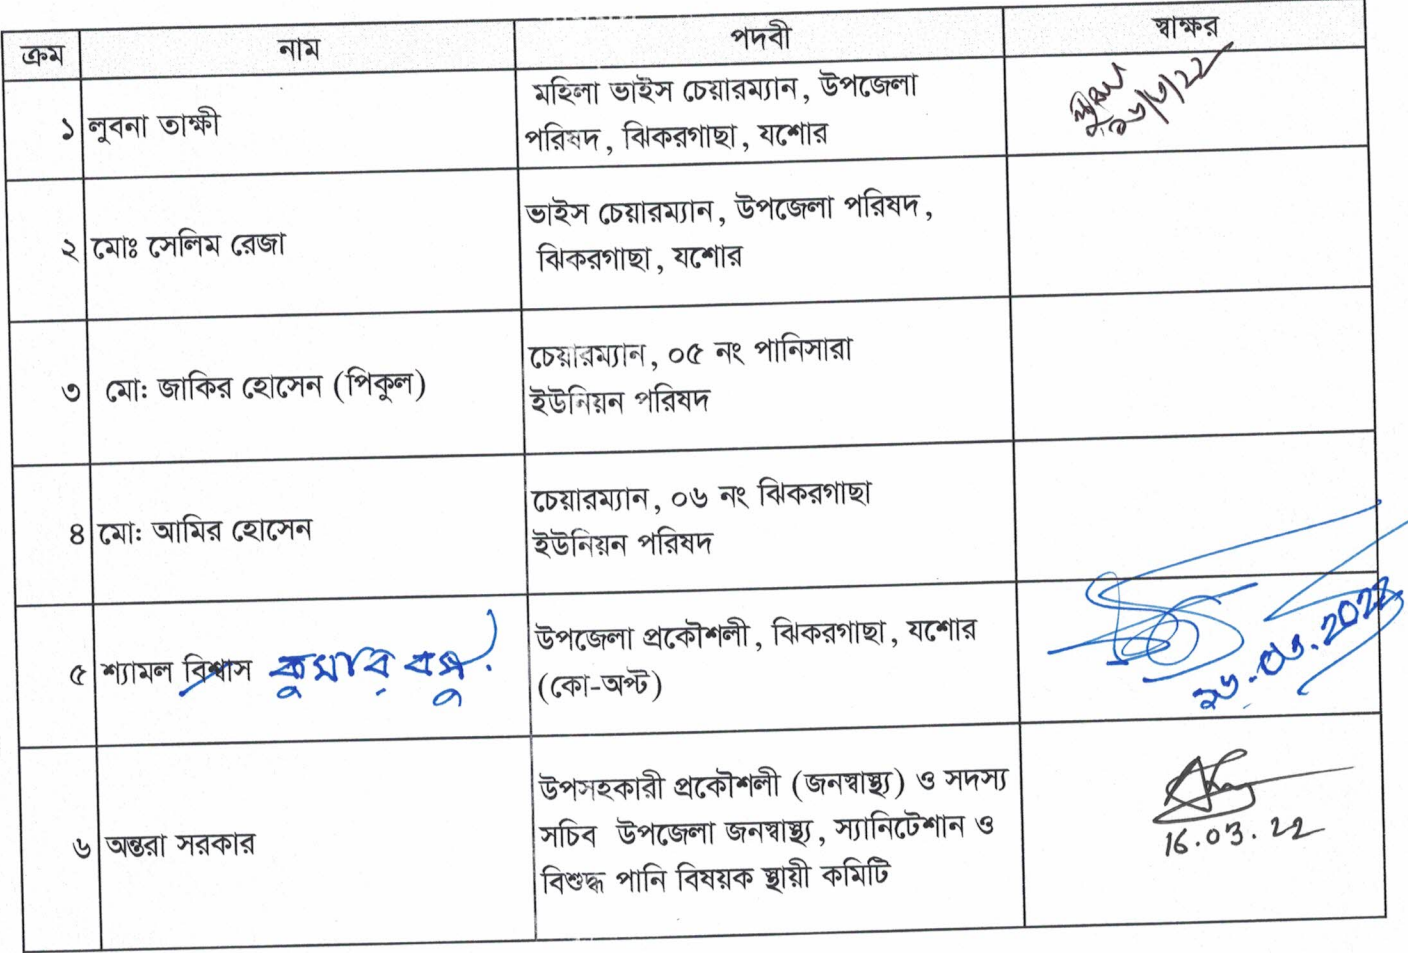 ক্রম নাম পদবী স্বাক্ষর
১ লুবনা তাক্ষী মহিলা ভাইস চেয়ারম্যান, উপজেলা
পরিষদ, ঝিকরগাছা, যশোর
২ মোঃ সেলিম রেজা ভাইস চেয়ারম্যান, উপজেলা পরিষদ,
ঝিকরগাছা, যশোর
৩ মো: জাকির হোসেন (পিকুল) চেয়ারম্যান, ০৫ নং পানিসারা
ইউনিয়ন পরিষদ
৪ মো: আমির হোসেন চেয়ারম্যান, ০৬ নং ঝিকরগাছা
ইউনিয়ন পরিষদ
৫ শ্যামল বিশ্বাস কুমার বসু উপজেলা প্রকৌশলী, ঝিকরগাছা, যশোর
(কো-অপ্ট)
১৬.০৩.2022
৬ অন্তরা সরকার উপসহকারী প্রকৌশলী (জনস্বাস্থ্য) ও সদস্য
সচিব উপজেলা জনস্বাস্থ্য, স্যানিটেশান ও
বিশুদ্ধ পানি বিষয়ক স্থায়ী কমিটি
16.03.22